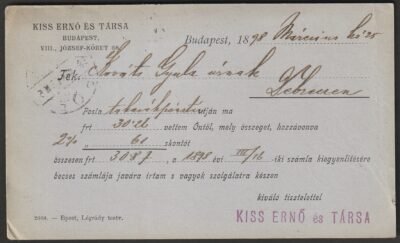 KISS ERNŐ ÉS TÁRSA
BUDAPEST,
VIII., JÓZSEF-KÖRÚT
Budapest, 1898 Márczius hó 20
Tek. Gyula úrnak
Debreczen
Posta takarékpénztár utján ma
frt 30·26 vettem Öntől, mely összeget, hozzávonva
2% „ 61 skontót
összesen frt 30 87, a 1898 évi III/16 iki számla kiegyenlítésére
becses számlája javára irtam s vagyok szolgálatra készen
kiváló tisztelettel
KISS ERNŐ és TÁRSA
— Bpest, Légrády testv.